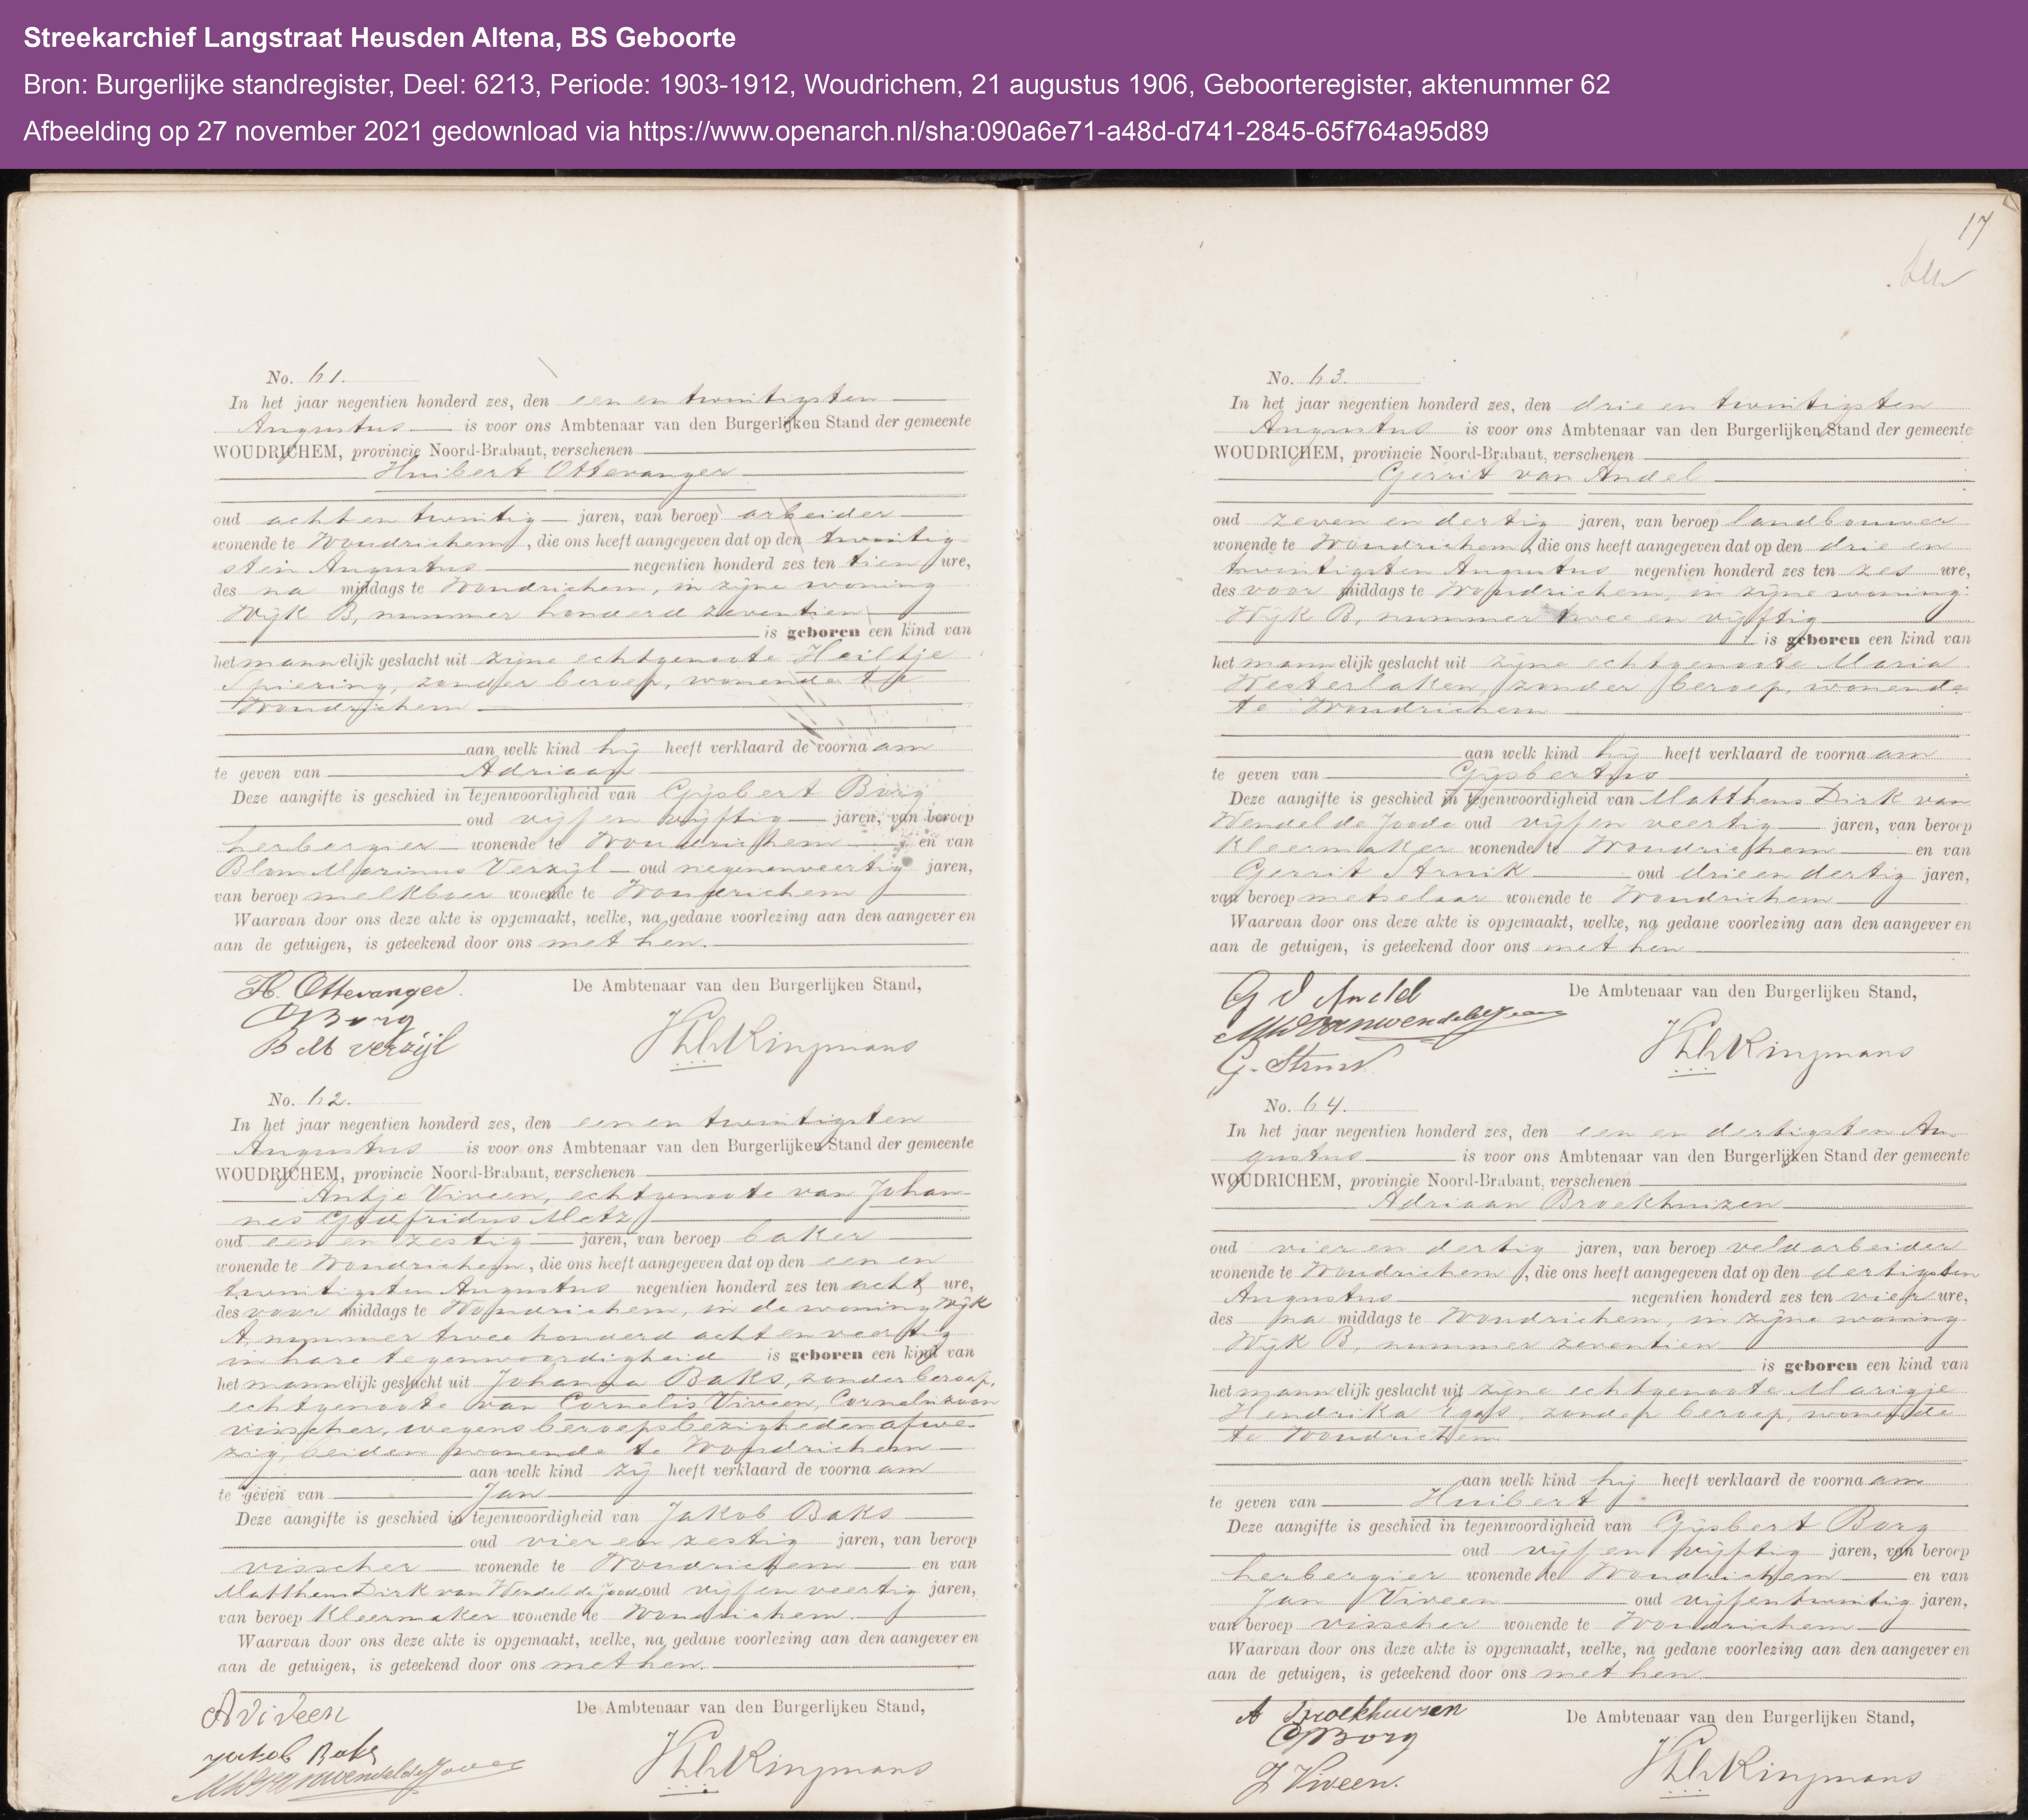 Streekarchief Langstraat Heusden Altena, BS Geboorte
Bron: Burgerlijke standregister, Deel: 6213, Periode: 1903-1912, Woudrichem, 21 augustus 1906, Geboorteregister, aktenummer 62
Afbeelding op 27 november 2021 gedownload via https://www.openarch.nl/sha:090a6e71-a48d-d741-2845-65f764a95d89
No. 61.
In het jaar negentien honderd zes, den een en twintigsten
Augustus is voor ons Ambtenaar van den Burgerlijken Stand der gemeente
WOUDRICHEM, provincie Noord-Brabant, verschenen
Huibert Ottevanger
oud acht en twintig jaren, van beroep arbeider
wonende te Woudrichem, die ons heeft aangegeven dat op den twintig-
sten Augustus negentien honderd zes ten tien ure,
des na middags te Woudrichem, in zijne woning
Wijk B, nummer honderd zeventien
is geboren een kind van
het mannelijk geslacht uit zijne echtgenoote Heiltje
Spiering, zonder beroep, wonende te
Woudrichem
aan welk kind hij heeft verklaard de voornaam
te geven van Adriaan
Deze aangifte is geschied in tegenwoordigheid van Gijsbert Borg
oud vijf en vijftig jaren, van beroep
herbergier wonende te Woudrichem en van
Blom Marinus Verzijl oud negenenveertig jaren,
van beroep melkboer wonende te Woudrichem
Waarvan door ons deze akte is opgemaakt, welke, na gedane voorlezing aan den aangever en
aan de getuigen, is geteekend door ons met hen.
H. Ottevanger.
De Ambtenaar van den Burgerlijken Stand,
GBorg
B M verzijl
No. 62.
In het jaar negentien honderd zes, den een en twintigsten
Augustus is voor ons Ambtenaar van den Burgerlijken Stand der gemeente
WOUDRICHEM, provincie Noord-Brabant, verschenen
Antje Viveen, echtgenoote van Johan-
nes Godfridus Metz
oud een en zestig jaren, van beroep baker
wonende te Woudrichem, die ons heeft aangegeven dat op den een en
twintigsten Augustus negentien honderd zes ten acht ure,
des voor middags te Woudrichem, in de woning Wijk
A, nummer twee honderd acht en veertig
in hare tegenwoordigheid is geboren een kind van
het mannelijk geslacht uit Johanna Baks, zonder beroep,
echtgenoote van Cornelis Viveen, Corneliszoon
visscher, wegens beroepsbezigheden afwe-
zig, beiden wonende te Woudrichem
aan welk kind zij heeft verklaard de voornaam
te geven van Jan
Deze aangifte is geschied in tegenwoordigheid van Jakob Baks
oud vier en zestig jaren, van beroep
visscher wonende te Woudrichem en van
Mattheus Dirk van Wendel de Joode oud vijf en veertig jaren,
van beroep kleermaker wonende te Woudrichem.
Waarvan door ons deze akte is opgemaakt, welke, na gedane voorlezing aan den aangever en
aan de getuigen, is geteekend door ons met hen.
A Viveen
De Ambtenaar van den Burgerlijken Stand,
Jakob Baks
17
No. 63.
In het jaar negentien honderd zes, den drie en twintigsten
Augustus is voor ons Ambtenaar van den Burgerlijken Stand der gemeente
WOUDRICHEM, provincie Noord-Brabant, verschenen
Gerrit van Andel
oud zeven en dertig jaren, van beroep landbouwer
wonende te Woudrichem, die ons heeft aangegeven dat op den drie en
twintigsten Augustus negentien honderd zes ten zes ure,
des voor middags te Woudrichem, in zijne woning
Wijk B, nummer twee en vijftig
is geboren een kind van
het mannelijk geslacht uit zijne echtgenoote Maria
Westerlaken, zonder beroep, wonende
te Woudrichem
aan welk kind hij heeft verklaard de voornaam
te geven van Gijsbertus
Deze aangifte is geschied in tegenwoordigheid van Mattheus Dirk van
Wendel de Joode oud vijf en veertig jaren, van beroep
kleermaker wonende te Woudrichem en van
Gerrit oud drie en dertig jaren,
van beroep metselaar wonende te Woudrichem
Waarvan door ons deze akte is opgemaakt, welke, na gedane voorlezing aan den aangever en
aan de getuigen, is geteekend door ons met hen
G v Andel
De Ambtenaar van den Burgerlijken Stand,
No. 64.
In het jaar negentien honderd zes, den een en dertigsten Au-
gustus is voor ons Ambtenaar van den Burgerlijken Stand der gemeente
WOUDRICHEM, provincie Noord-Brabant, verschenen
Adriaan Broekhuizen
oud vier en dertig jaren, van beroep veldarbeider
wonende te Woudrichem, die ons heeft aangegeven dat op den dertigsten
Augustus negentien honderd zes ten vier ure,
des na middags te Woudrichem, in zijne woning
Wijk B, nummer zeventien
is geboren een kind van
het mannelijk geslacht uit zijne echtgenoote Marigje
Hendrika, zonder beroep, wonende
te Woudrichem
aan welk kind hij heeft verklaard de voornaam
te geven van Huibert
Deze aangifte is geschied in tegenwoordigheid van Gijsbert Borg
oud vijf en vijftig jaren, van beroep
herbergier wonende te Woudrichem en van
Jan Viveen oud vijfentwintig jaren,
van beroep visscher wonende te Woudrichem
Waarvan door ons deze akte is opgemaakt, welke, na gedane voorlezing aan den aangever en
aan de getuigen, is geteekend door ons met hen
A Broekhuizen
De Ambtenaar van den Burgerlijken Stand,
GBorg
J Viveen.